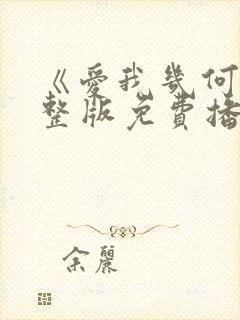 《爱我几何
整版免费播
余丽